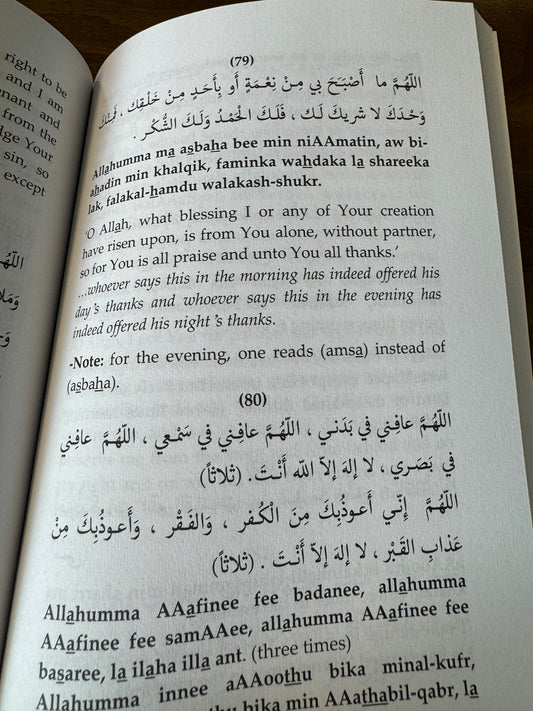 right to be
and I am
enant and
from the
dge Your
sin, so
except
(79)
اللَّهُمَّ ما أَصْبَحَ بي مِنْ نِعْمَةٍ أَو بِأَحَدٍ مِنْ خَلْقِك ، فَمِنْكَ
وَحْدَكَ لا شريكَ لَك ، فَلَكَ الْحَمْدُ وَلَكَ الشُّكْر .
Allahumma ma asbaha bee min niAAmatin, aw bi-
ahadin min khalqik, faminka wahdaka la shareeka
lak, falakal-hamdu walakash-shukr.
‘O Allah, what blessing I or any of Your creation
have risen upon, is from You alone, without partner,
so for You is all praise and unto You all thanks.’
…whoever says this in the morning has indeed offered his
day’s thanks and whoever says this in the evening has
indeed offered his night’s thanks.
-Note: for the evening, one reads (amsa) instead of
(asbaha).
(80)
اللَّهُمَّ عافِني في بَدَني ، اللَّهُمَّ عافِني في سَمْعي ، اللَّهُمَّ عافِني
في بَصَري ، لا إلهَ إلاّ اللّه أَنْتَ. (ثلاثاً)
اللَّهُمَّ إِنّي أَعوذُبِكَ مِنَ الْكُفر ، وَالفَقْر ، وَأَعوذُبِكَ مِنْ
عَذابِ القَبْر ، لا إلهَ إلاّ أَنْتَ . (ثلاثاً)
Allahumma AAafinee fee badanee, allahumma
AAafinee fee samAAee, allahumma AAafinee fee
basaree, la ilaha illa ant. (three times)
Allahumma innee aAAoothu bika minal-kufr,
bika min AAathabil-qabr, la